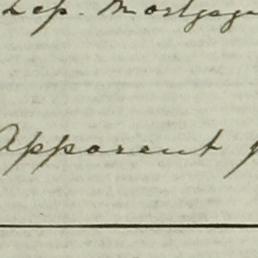 Dep. Mortgage
Apparent